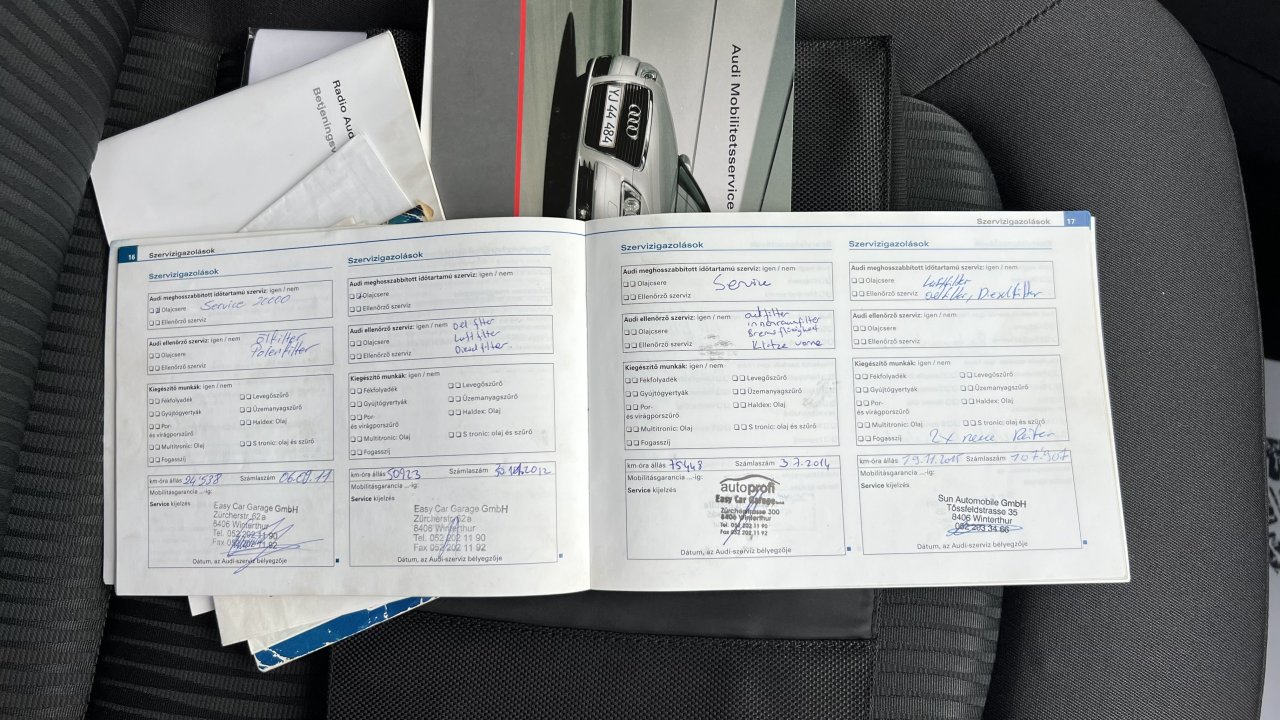 Radio Aud
Betjeningsv
Audi Mobilitetsservice
YJ 44 484
16 Szervizigazolások
Szervizigazolások
Audi meghosszabbított időtartamú szerviz: igen / nem
Olajcsere
Service 20000
Ellenőrző szerviz
Audi ellenőrző szerviz: igen / nem
Ölfilter
Olajcsere
Polenfilter
Ellenőrző szerviz
Kiegészítő munkák: igen / nem
Fékfolyadék
Levegőszűrő
Gyújtógyertyák
Üzemanyagszűrő
Por-
és virágporszűrő
Haldex: Olaj
Multitronic: Olaj
S tronic: olaj és szűrő
Fogasszíj
km-óra állás 24'538 Számlaszám 06.09.11
Mobilitásgarancia ...-ig:
Service kijelzés
Easy Car Garage GmbH
Zürcherstr. 62a
8406 Winterthur
Tel. 052 202 11 90
Fax 052 202 11 92
Dátum, az Audi-szerviz bélyegzője
Szervizigazolások
Audi meghosszabbított időtartamú szerviz: igen / nem
Olajcsere
Ellenőrző szerviz
Audi ellenőrző szerviz: igen / nem
Oel filter
Olajcsere
Luftfilter
Ellenőrző szerviz
Diesel filter
Kiegészítő munkák: igen / nem
Fékfolyadék
Levegőszűrő
Gyújtógyertyák
Üzemanyagszűrő
Por-
és virágporszűrő
Haldex: Olaj
Multitronic: Olaj
S tronic: olaj és szűrő
Fogasszíj
km-óra állás 50923 Számlaszám
Mobilitásgarancia ...-ig:
Service kijelzés
Easy Car Garage GmbH
Zürcherstr. 62a
8406 Winterthur
Tel. 052 202 11 90
Fax 052 202 11 92
Dátum, az Audi-szerviz bélyegzője
Szervizigazolások 17
Szervizigazolások
Audi meghosszabbított időtartamú szerviz: igen / nem
Olajcsere
Service
Ellenőrző szerviz
Audi ellenőrző szerviz: igen / nem
oelfilter
innenraumfilter
Olajcsere
Bremsflüssigkeit
Ellenőrző szerviz
Klötze vorne
Kiegészítő munkák: igen / nem
Fékfolyadék
Levegőszűrő
Gyújtógyertyák
Üzemanyagszűrő
Por-
és virágporszűrő
Haldex: Olaj
Multitronic: Olaj
S tronic: olaj és szűrő
Fogasszíj
km-óra állás 75448 Számlaszám 3.7.2014
Mobilitásgarancia ...-ig:
Service kijelzés
autoprofi
Easy Car Garage GmbH
Zürcherstrasse 300
8406 Winterthur
Tel. 052 202 11 90
Fax 052 202 11 92
Dátum, az Audi-szerviz bélyegzője
Szervizigazolások
Audi meghosszabbított időtartamú szerviz: igen / nem
Olajcsere
Luftfilter
Ellenőrző szerviz
oelfilter, Dieselfilter
Audi ellenőrző szerviz: igen / nem
Olajcsere
Ellenőrző szerviz
Kiegészítő munkák: igen / nem
Fékfolyadék
Levegőszűrő
Gyújtógyertyák
Üzemanyagszűrő
Por-
és virágporszűrő
Haldex: Olaj
Multitronic: Olaj
S tronic: olaj és szűrő
Fogasszíj
2x neue
km-óra állás 19.11.2015 Számlaszám 107.907
Mobilitásgarancia ...-ig:
Service kijelzés
Sun Automobile GmbH
Tössfeldstrasse 35
8406 Winterthur
052 203 34 66
Dátum, az Audi-szerviz bélyegzője